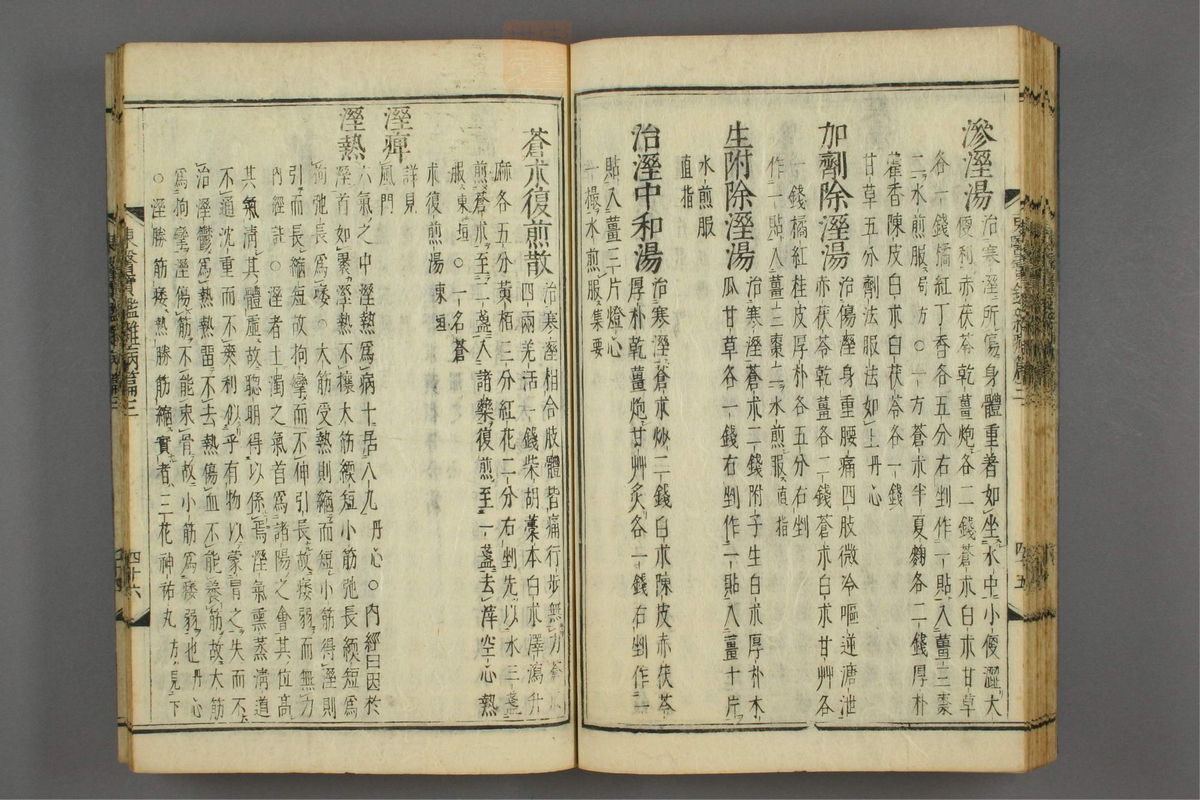 滲溼湯 治寒溼所傷身體重著如坐水中小便澀大
便利赤茯苓乾薑炮各二錢蒼朮白朮甘草
各一錢橘紅丁香各五分右剉作一貼入薑三棗
二水煎服局方○一方蒼朮半夏麴各二錢厚朴
藿香陳皮白朮白茯苓各一錢
甘草五分劑法服法如上丹心
加劑除溼湯 治傷溼身重腰痛四肢微冷嘔逆溏泄
赤茯苓乾薑各二錢蒼朮白朮甘艸各
一錢橘紅桂皮厚朴各五分右剉
作一貼入薑三棗二水煎服直指
生附除溼湯 治寒溼蒼朮二錢附子生白朮厚朴木
瓜甘草各一錢右剉作一貼入薑十片
水煎服
直指
治溼中和湯 治寒溼蒼朮炒二錢白朮陳皮赤茯苓
厚朴乾薑炮甘艸炙各一錢右剉作一
貼入薑三片燈心
一撮水煎服集要
東醫寶鑑雜病篇三
四十六
蒼朮復煎散 治寒溼相合肢體皆痛行步無力蒼朮
四兩羌活一錢柴胡藁本白朮澤瀉升
麻各五分黃栢三分紅花二分右剉先以水三盞
煎蒼朮至二盞入諸藥復煎至一盞去滓空心熱
服東垣○一名蒼
朮復煎湯東垣
溼痺 詳見
風門
溼熱 六氣之中溼熱爲病十居八九丹心○內經曰因於
溼首如裹溼熱不攘大筋緛短小筋弛長緛短爲
拘弛長爲痿○大筋受熱則縮而短小筋得溼則
引而長縮短故拘攣而不伸引長故痿弱而無力
內經註○溼者土濁之氣首爲諸陽之會其位高
其氣淸其體虛故聰明得以係焉溼氣熏蒸淸道
不通沈重而不爽利似乎有物以蒙冒之失而不
治溼鬱爲熱熱留不去熱傷血不能養筋故大筋
爲拘攣溼傷筋不能束骨故小筋爲痿弱也丹心
○溼勝筋痿熱勝筋縮實者三花神祐丸方見下